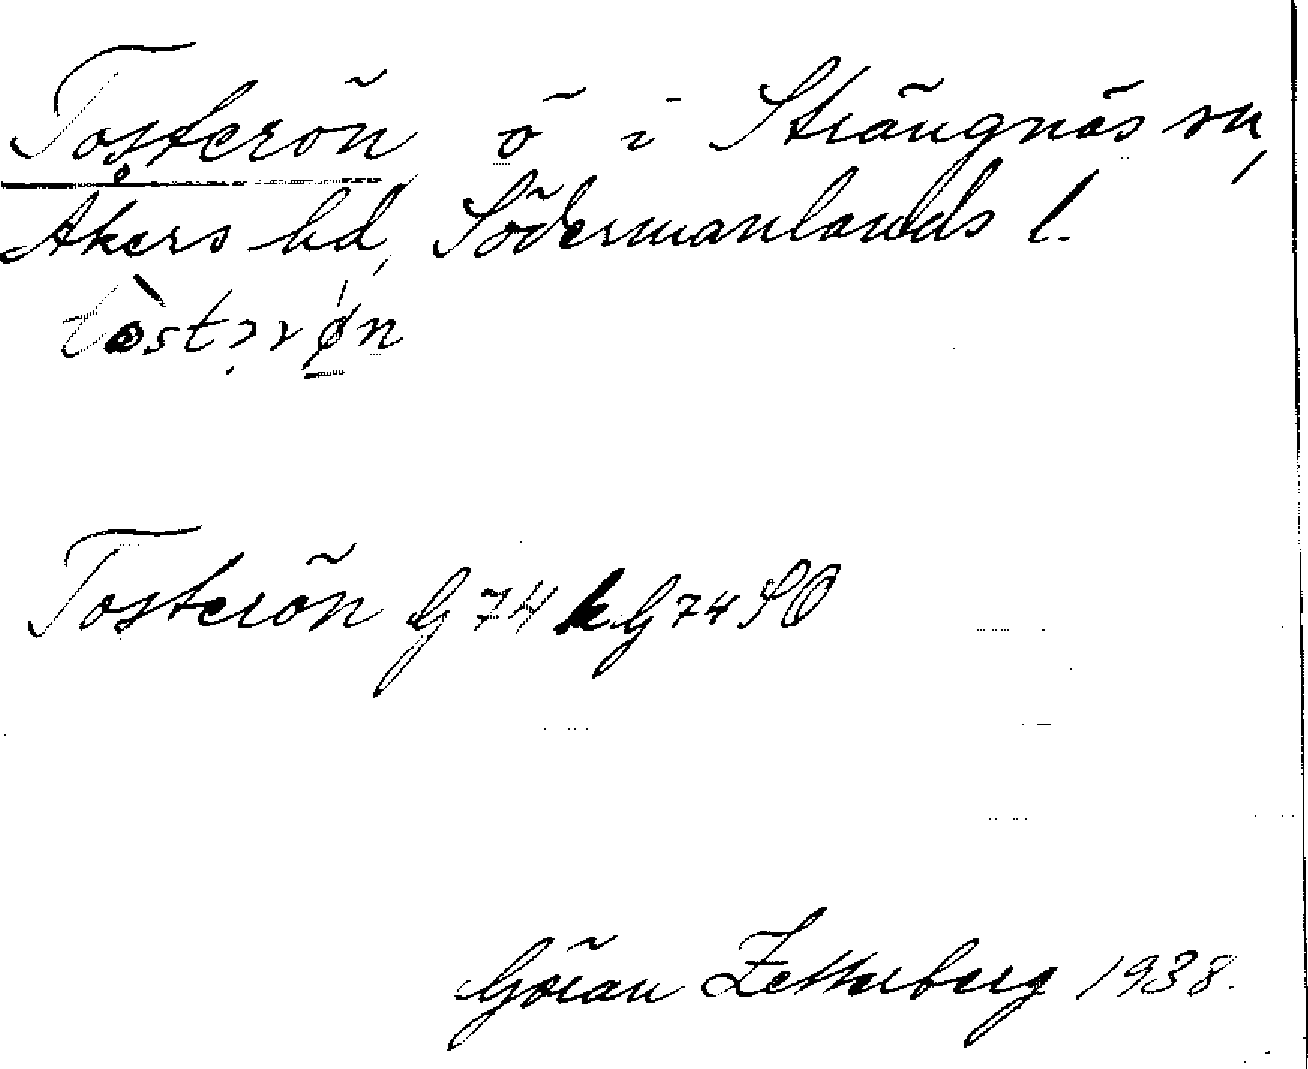 Tosterön ö i Strängnäs sn,
Åkers hd, Södermanlands l.
Tosterön G 74 k G 74 SO
Göran Zetterberg 1938.